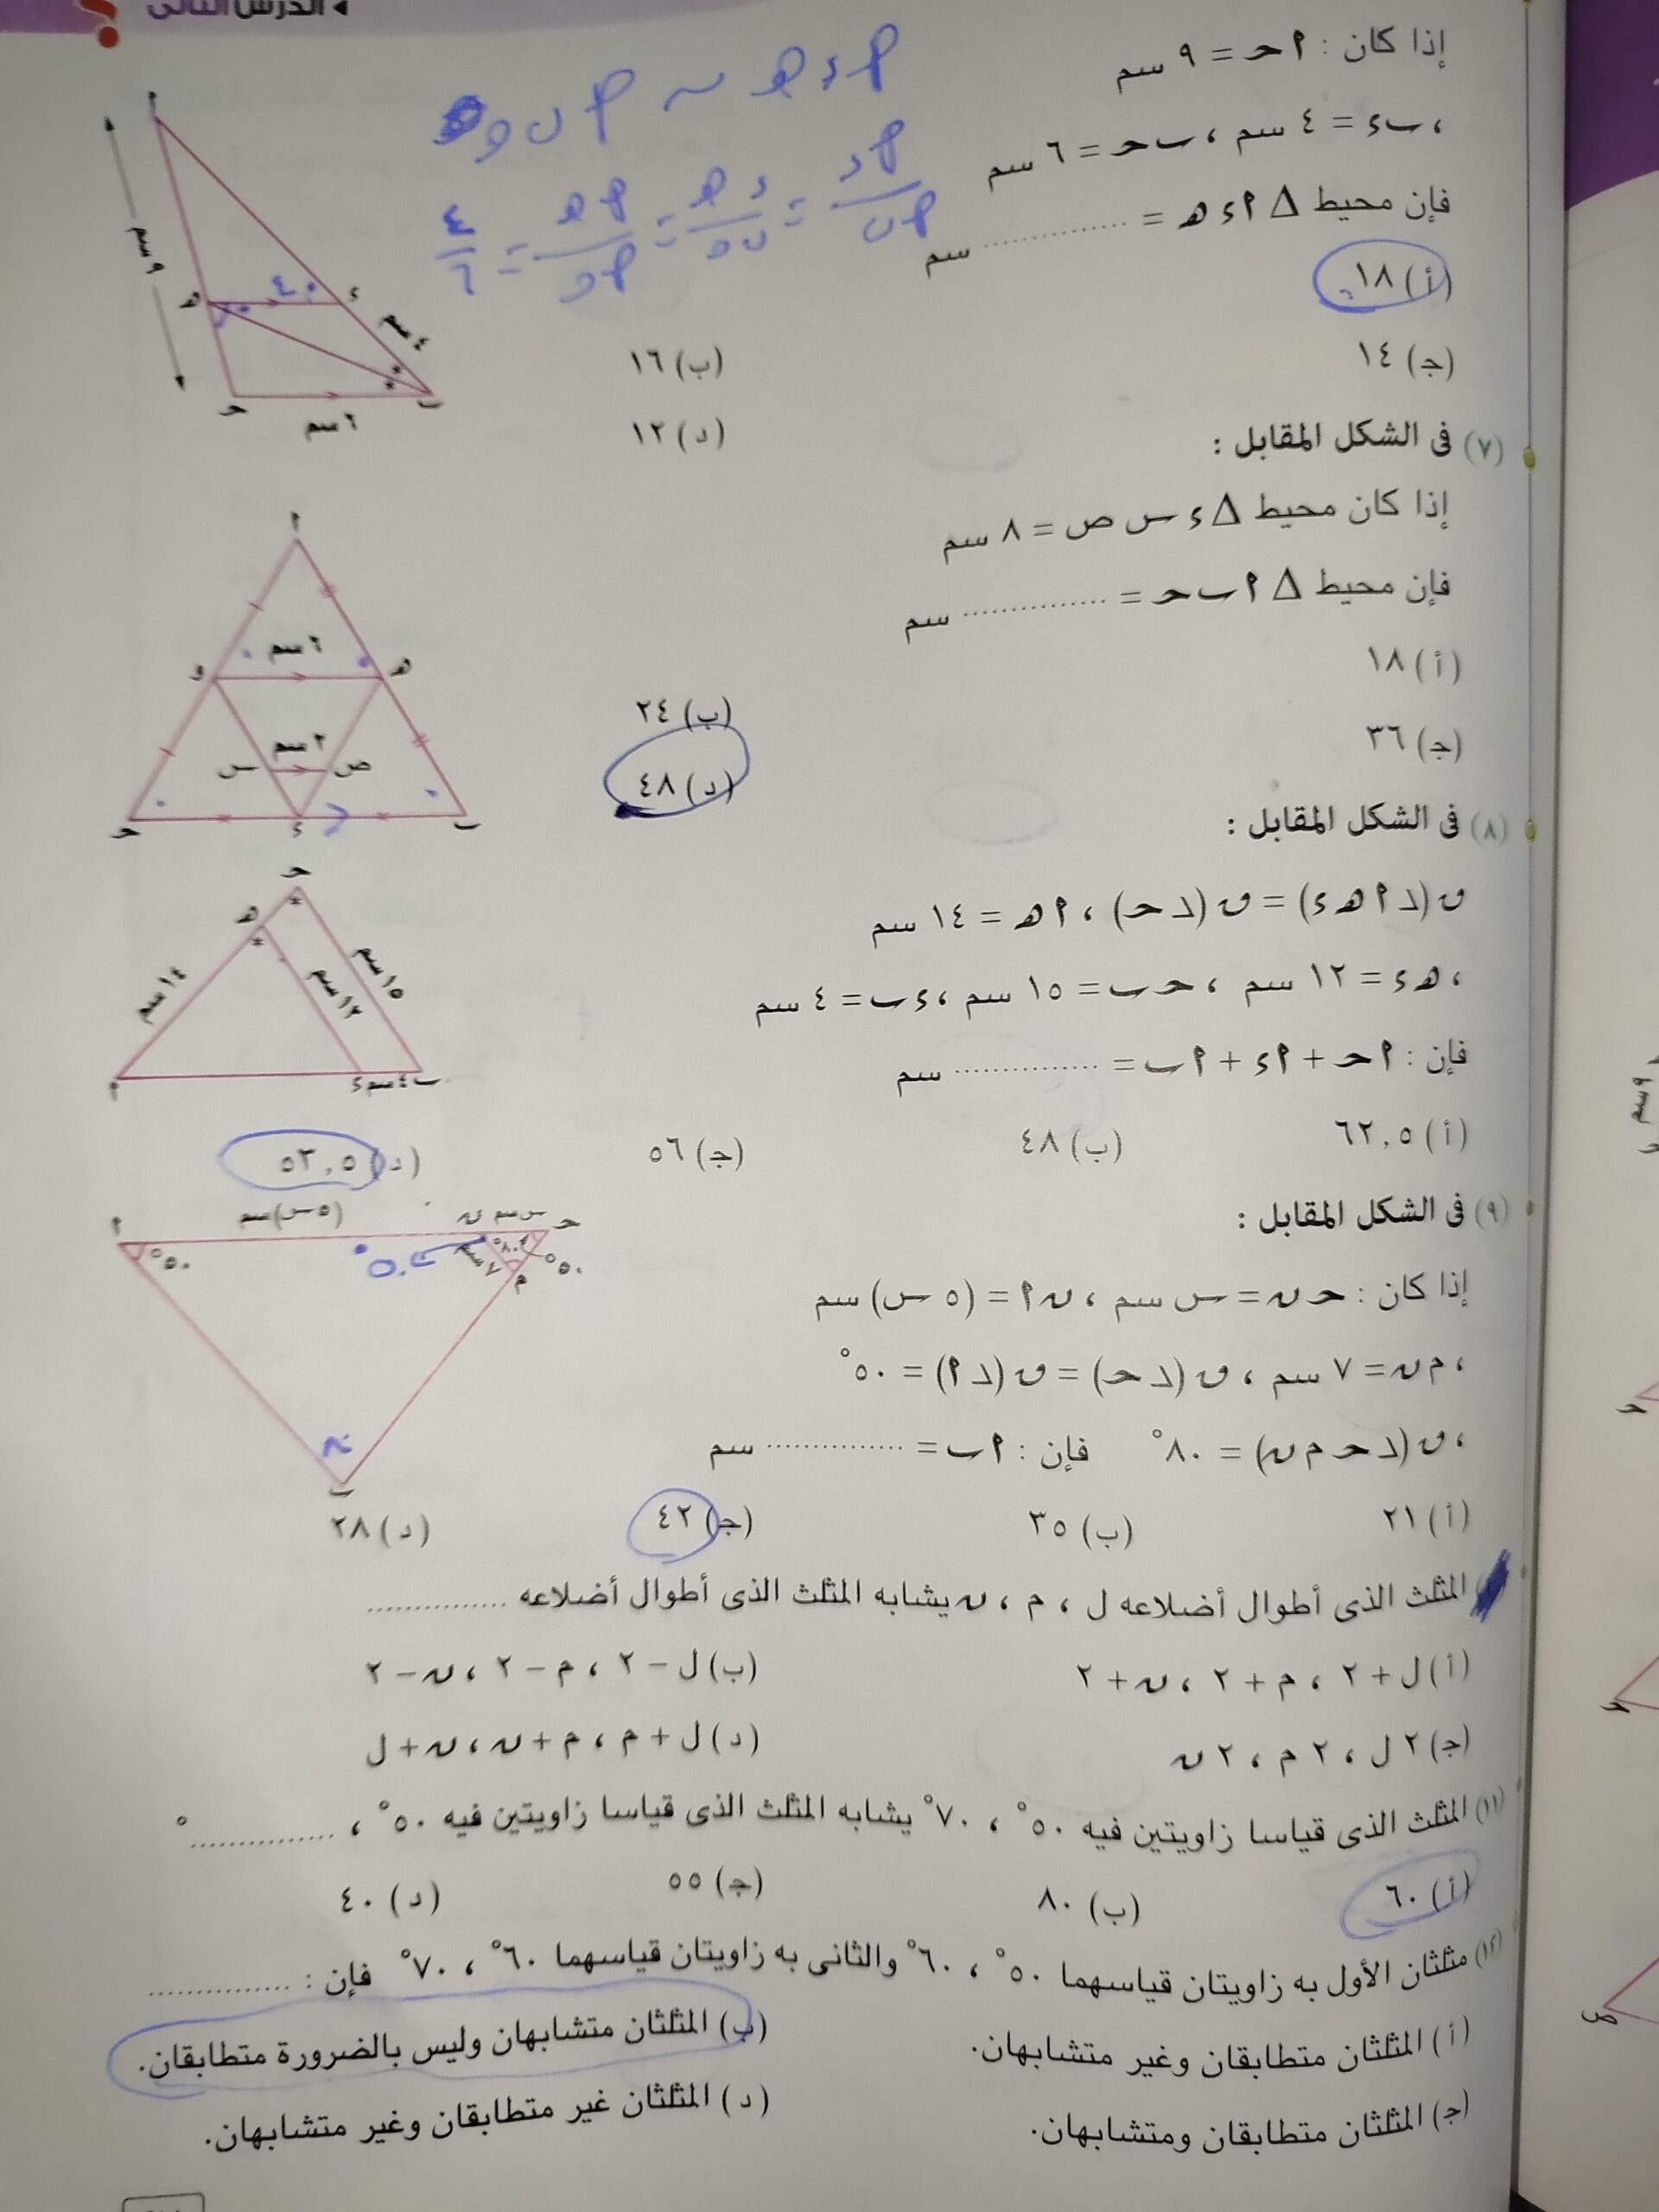 ◂ الدرس الثانى
إذا كان : ا حـ = ٩ سم
، ب ء = ٤ سم ، ب حـ = ٦ سم
فإن محيط Δ ا ء هـ = ............... سم
(أ) ١٨
(ب) ١٦
(جـ) ١٤
(د) ١٢
ا
٩ سم
هـ
ء
٤
٤ سم
حـ
ب
٦ سم
ا ء هـ ~ ا ب و
ا ء / ا ب = ء هـ / ب و = ا هـ / ا و = ٤ / ٦
(٧) فى الشكل المقابل :
إذا كان محيط Δ ء س ص = ٨ سم
فإن محيط Δ ا ب حـ = ............... سم
(أ) ١٨
(ب) ٢٤
(جـ) ٣٦
(د) ٤٨
ا
٦ سم
و
هـ
٢ سم
س
ص
حـ
ء
ب
(٨) فى الشكل المقابل :
ق (د ا هـ ء) = ق (د حـ) ، ا هـ = ١٤ سم
، هـ ء = ١٢ سم ، حـ ب = ١٥ سم ، ء ب = ٤ سم
فإن : ا حـ + ا ء + ا ب = ............... سم
(أ) ٦٢,٥ (ب) ٤٨ (جـ) ٥٦ (د) ٥٣,٥
حـ
هـ
١٤ سم
١٢ سم
١٥ سم
ا
ء ٤ سم ب
(٩) فى الشكل المقابل :
إذا كان : حـ ن = س سم ، ن ا = (٥ س) سم
، م ن = ٧ سم ، ق (د حـ) = ق (د ا) = ٥٠°
، ق (د حـ م ن) = ٨٠° فإن : ا ب = ............... سم
(أ) ٢١ (ب) ٣٥ (جـ) ٤٢ (د) ٢٨
ا (٥ س) سم ن س سم حـ
٥٠° ٥٠ ٨٠° ٥٠°
٧ سم
م
ب
المثلث الذى أطوال أضلاعه ل ، م ، ن يشابه المثلث الذى أطوال أضلاعه ...............
(أ) ل + ٢ ، م + ٢ ، ن + ٢ (ب) ل – ٢ ، م – ٢ ، ن – ٢
(جـ) ٢ ل ، ٢ م ، ٢ ن (د) ل + م ، م + ن ، ن + ل
(١١) المثلث الذى قياسا زاويتين فيه ٥٠° ، ٧٠° يشابه المثلث الذى قياسا زاويتين فيه ٥٠° ، ...............°
(أ) ٦٠ (ب) ٨٠ (جـ) ٥٥ (د) ٤٠
(١٢) مثلثان الأول به زاويتان قياسهما ٥٠° ، ٦٠° والثانى به زاويتان قياسهما ٦٠° ، ٧٠° فإن : ...............
(أ) المثلثان متطابقان وغير متشابهان. (ب) المثلثان متشابهان وليس بالضرورة متطابقان.
(جـ) المثلثان متطابقان ومتشابهان. (د) المثلثان غير متطابقان وغير متشابهان.